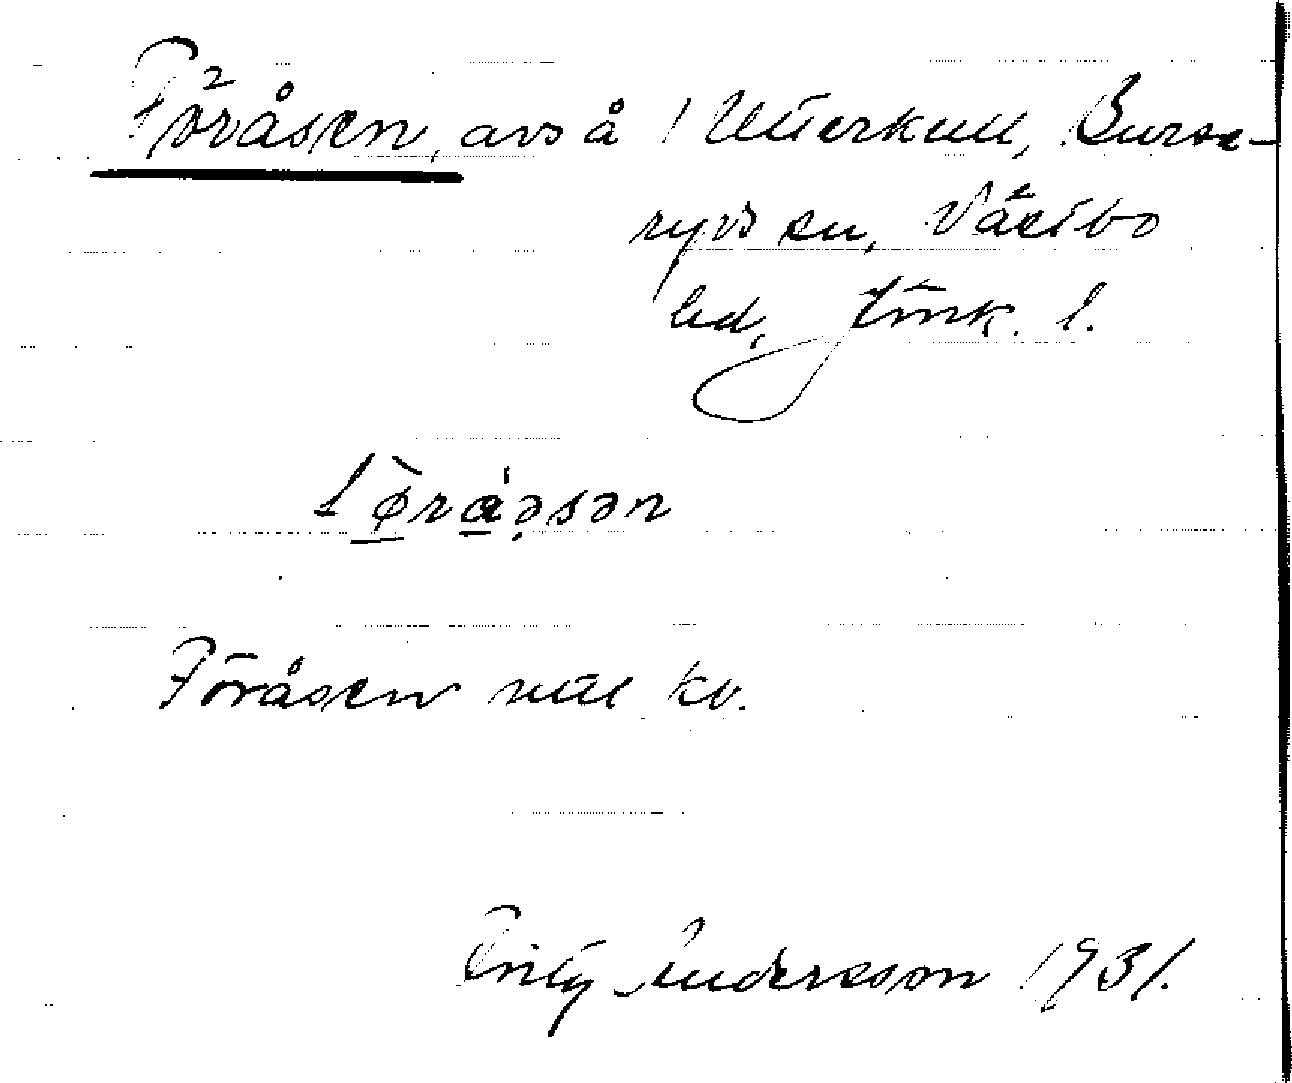 Föråsen, avs å 1 Utterkull, Burse-
ryds sn, Västbo
hd, Jönk. l.
fø̀ráəsən
Föråsen utt. kv.
Andersson 1931.